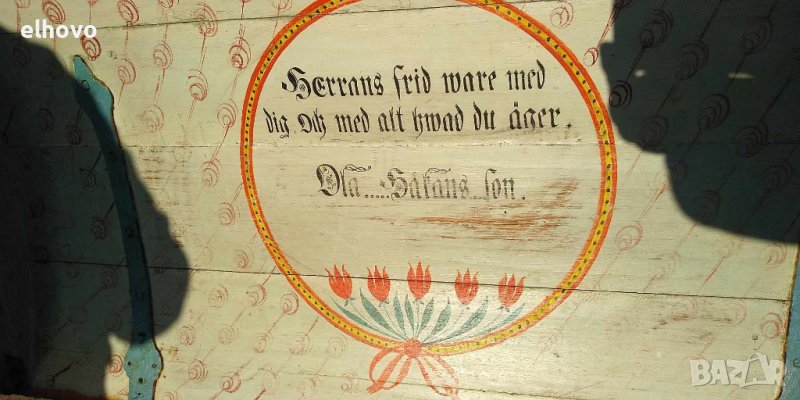 elhovo
HErrans frid ware med
dig och med alt hwad du äger.
Ola....Håkans..son.
BAZAR